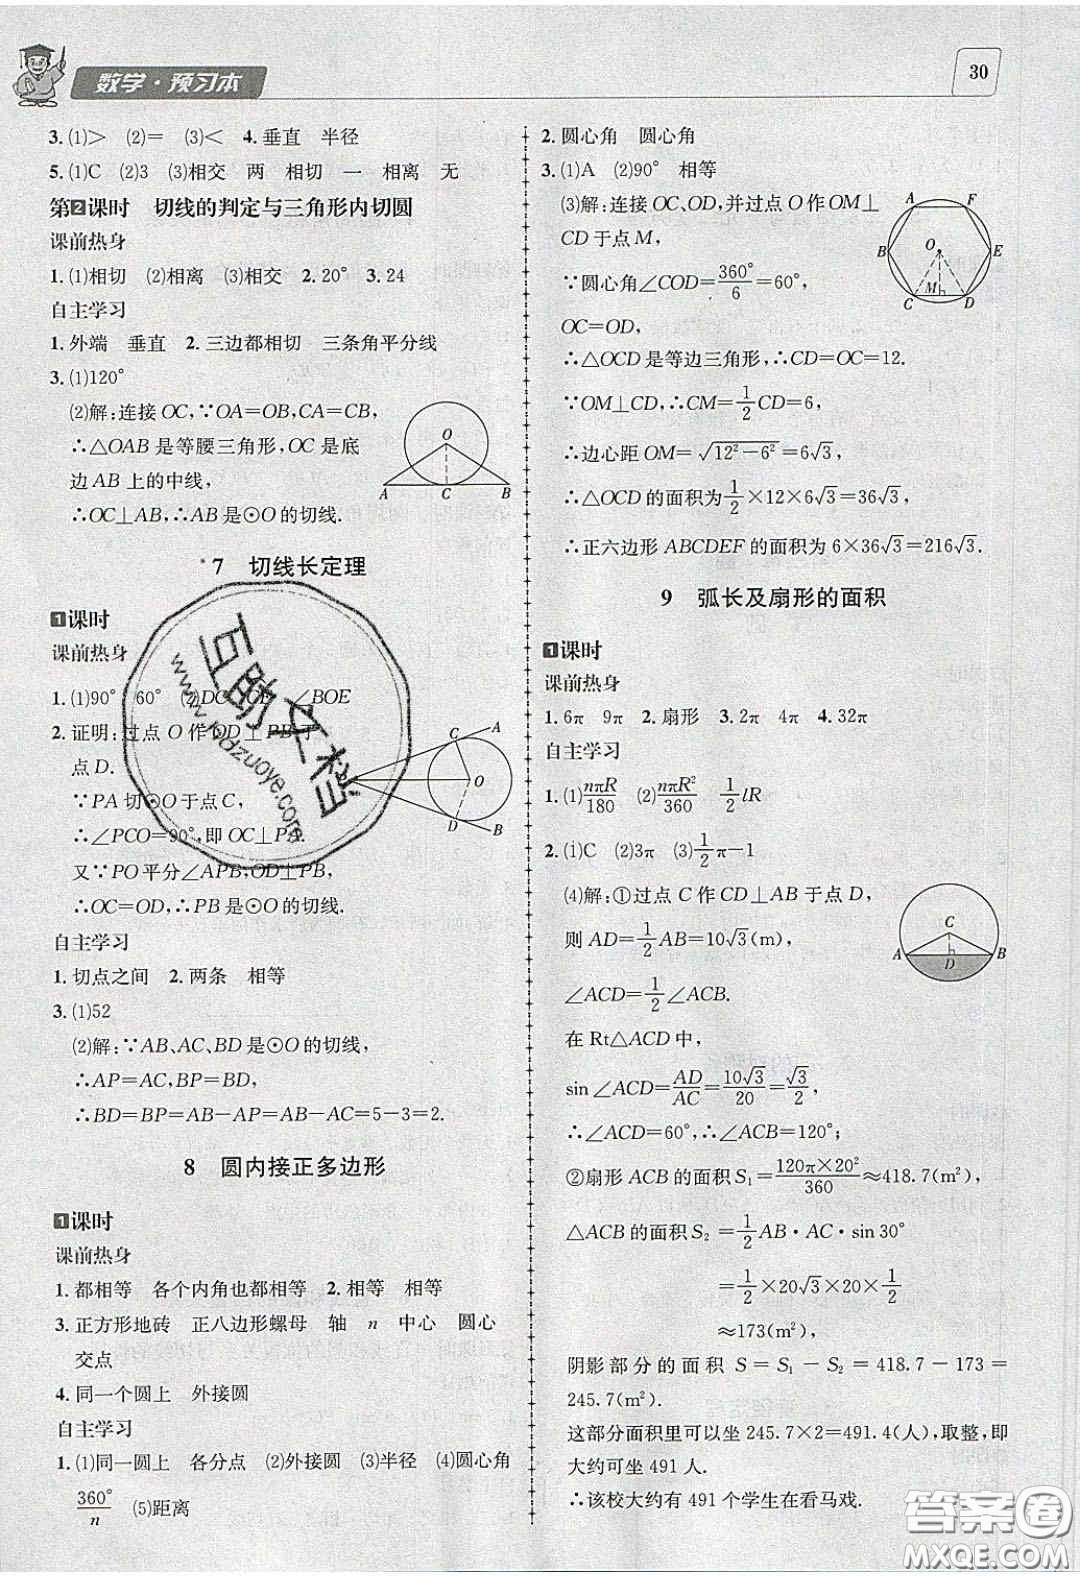 数学·预习本
30
3.(1)> (2)= (3)< 4.垂直 半径
5.(1)C (2)3 (3)相交 两 相切 一 相离 无
第2课时 切线的判定与三角形内切圆
课前热身
1.(1)相切 (2)相离 (3)相交 2.20° 3.24
自主学习
1.外端 垂直 2.三边都相切 三条角平分线
3.(1)120°
(2)解:连接OC,∵OA=OB,CA=CB,
∴△OAB是等腰三角形,OC是底
边AB上的中线,
∴OC⊥AB,∴AB是⊙O的切线.
O
A C B
7 切线长定理
1课时
课前热身
1.(1)90° 60° (2)DC ∠BOE
2.证明:过点O作OD⊥PB于
点D.
∵PA切⊙O于点C,
∴∠PCO=90°,即OC⊥PA.
又∵PO平分∠APB,OD⊥PB,
∴OC=OD,∴PB是⊙O的切线.
A
C
O
D
B
自主学习
1.切点之间 2.两条 相等
3.(1)52
(2)解:∵AB、AC、BD是⊙O的切线,
∴AP=AC,BP=BD,
∴BD=BP=AB-AP=AB-AC=5-3=2.
8 圆内接正多边形
1课时
课前热身
1.都相等 各个内角也都相等 2.相等 相等
3.正方形地砖 正八边形螺母 轴 n 中心 圆心
交点
4.同一个圆上 外接圆
自主学习
1.(1)同一圆上 各分点 (2)外接圆 (3)半径 (4)圆心角
360°/n (5)距离
2.圆心角 圆心角
3.(1)A (2)90° 相等
(3)解:连接OC、OD,并过点O作OM⊥
CD于点M,
∵圆心角∠COD=360°/6=60°,
OC=OD,
∴△OCD是等边三角形,∴CD=OC=12.
∵OM⊥CD,∴CM=1/2CD=6,
∴边心距OM=√(12²-6²)=6√3,
∴△OCD的面积为1/2×12×6√3=36√3,
∴正六边形ABCDEF的面积为6×36√3=216√3.
A F
B O E
C M D
9 弧长及扇形的面积
1课时
课前热身
1.6π 9π 2.扇形 3.2π 4π 4.32π
自主学习
1.(1)nπR/180 (2)nπR²/360 1/2 lR
2.(1)C (2)3π (3)1/2π-1
(4)解:①过点C作CD⊥AB于点D,
则AD=1/2AB=10√3(m),
∠ACD=1/2∠ACB.
在Rt△ACD中,
sin∠ACD=AD/AC=10√3/20=√3/2,
∴∠ACD=60°,∴∠ACB=120°;
②扇形ACB的面积S₁=120π×20²/360≈418.7(m²),
△ACB的面积S₂=1/2AB·AC·sin30°
=1/2×20√3×20×1/2
≈173(m²),
阴影部分的面积S=S₁-S₂=418.7-173=
245.7(m²).
这部分面积里可以坐245.7×2=491.4(人),取整,即
大约可坐491人.
∴该校大约有491个学生在看马戏.
C
A D B
互助文档
hdzuoye.com
答案圈
MXQE.COM